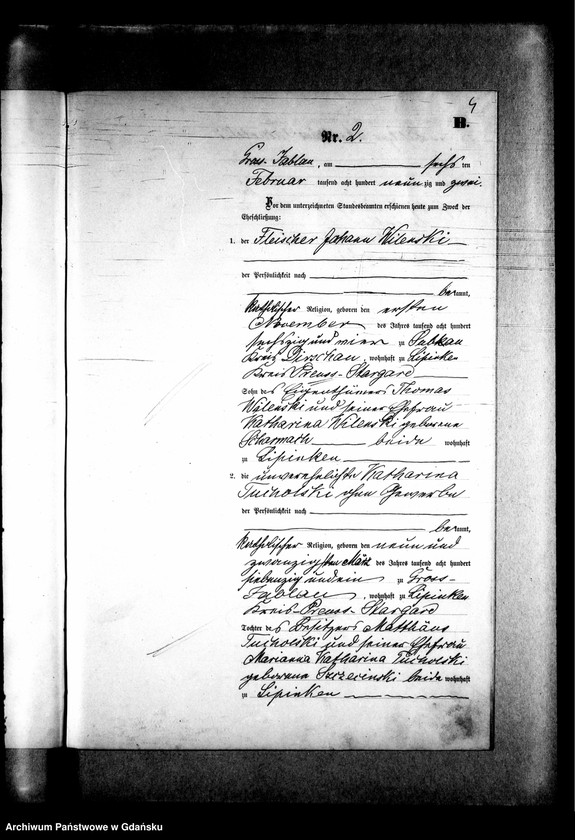 4
B.
Nr. 2.
Gross-Jablau, am sechs ten
Februar tausend acht hundert neunzig und zwei.
Vor dem unterzeichneten Standesbeamten erschienen heute zum Zweck der
Eheschließung:
1. der Fleischer Johann Wilenski
der Persönlichkeit nach
bekannt,
katholischer Religion, geboren den ersten
November des Jahres tausend acht hundert
sechszig und vier zu Subkau
Kreis Dirschau, wohnhaft zu Lipinken
Kreis Preuss-Stargard
Sohn des Eigenthümers Thomas
Wilenski und seiner Ehefrau
Katharina Wilenski geborene
beide wohnhaft
zu Lipinken
2. die unverehelichte Katharina
Tucholski ohne Gewerbe
der Persönlichkeit nach
bekannt,
katholischer Religion, geboren den neun und
zwanzigsten März des Jahres tausend acht hundert
siebenzig und ein zu Gross-
Jablau, wohnhaft zu Lipinken
Kreis Preuss-Stargard
Tochter des Besitzers Matthäus
Tucholski und seiner Ehefrau
Marianna Katharina Tucholski
geborene Szrzecinski beide wohnhaft
zu Lipinken
Archiwum Państwowe w Gdańsku